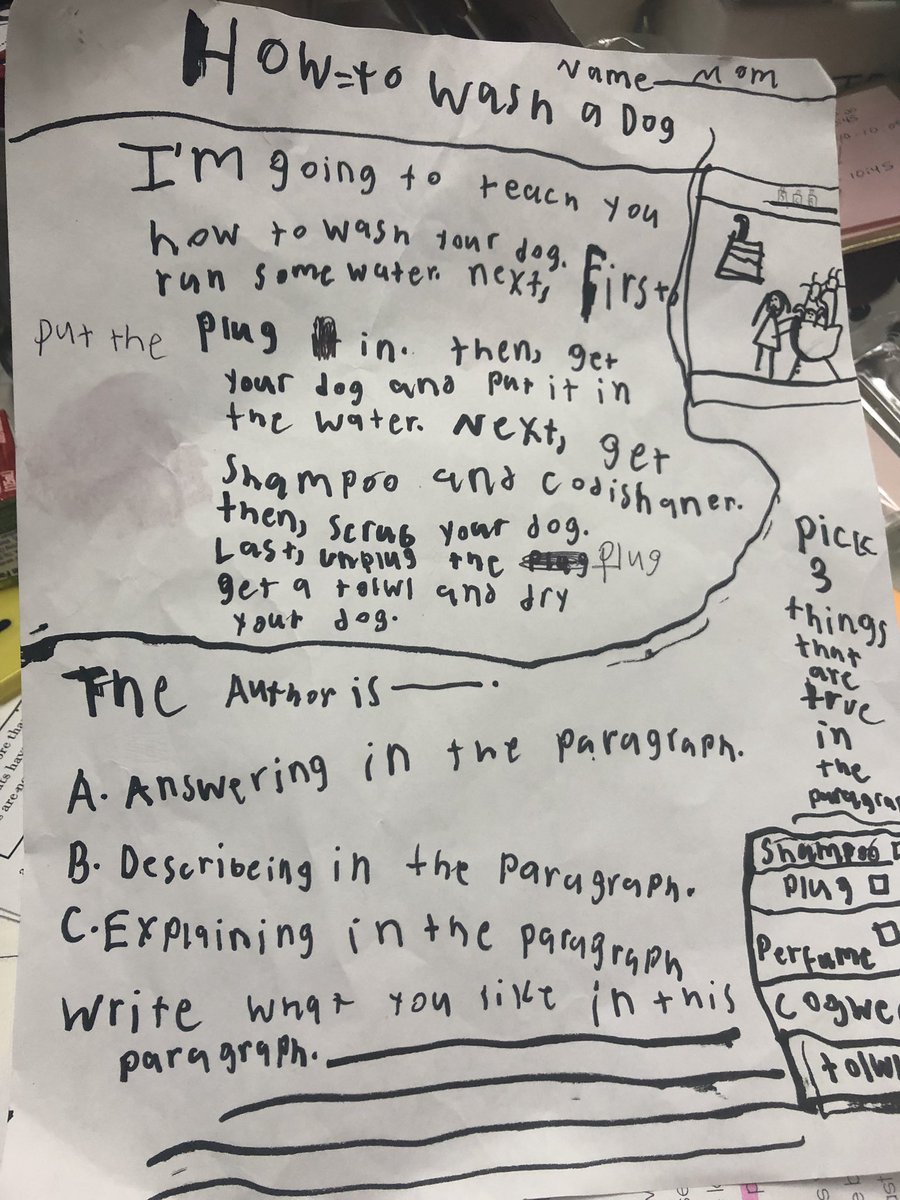 Name Mom
How-to Wash a Dog
I'm going to teach you
how to wash your dog. First,
run some water. next,
put the plug in. then, get
your dog and put it in
the water. Next, get
Shampoo and codishaner.
then, scrub your dog.
Last, unplug the plug
get a tolwl and dry
your dog.
The Author is ———.
A. Answering in the paragraph.
B. Describeing in the paragraph.
C. Explaining in the paragraph
Write what you like in this
paragraph.
Pick
3
things
that
are
true
in
the
paragra
Shampoo
Plug
Perfume
Cogwe
tolwl
10:45